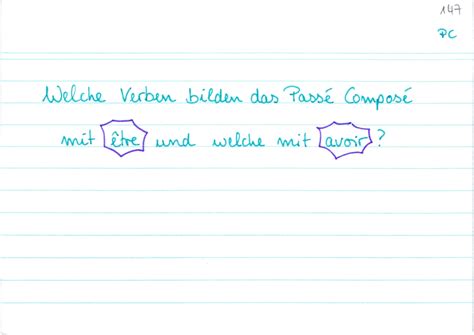 147
PC
Welche Verben bilden das Passé Composé
mit être und welche mit avoir?